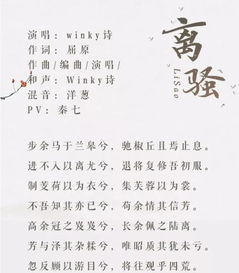 离骚
LiSao
演唱：winky诗
作词：屈原
作曲/编曲/演唱/
和声：Winky诗
混音：洋葱
PV：秦七
步余马于兰皋兮，驰椒丘且焉止息。
进不入以离尤兮，退将复修吾初服。
制芰荷以为衣兮，集芙蓉以为裳。
不吾知其亦已兮，苟余情其信芳。
高余冠之岌岌兮，长余佩之陆离。
芳与泽其杂糅兮，唯昭质其犹未亏。
忽反顾以游目兮，将往观乎四荒。